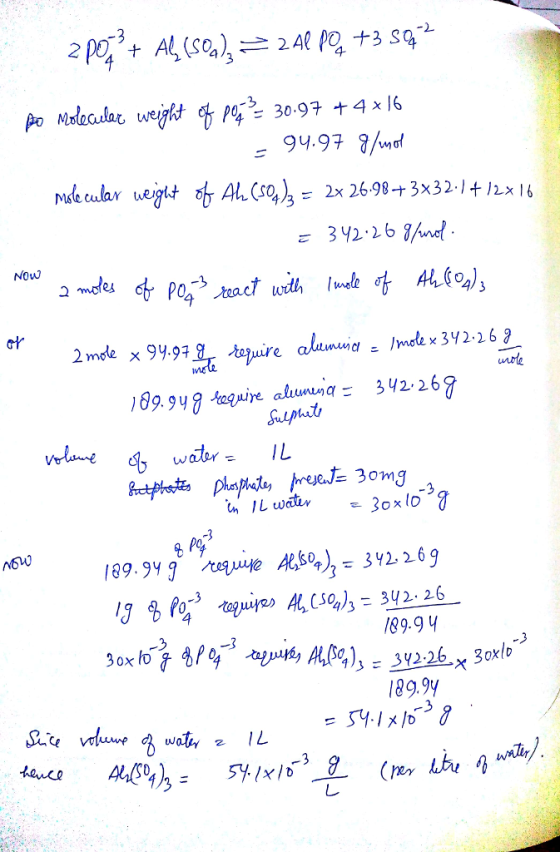 2 PO₄⁻³ + Al₂(SO₄)₃ ⇌ 2Al PO₄ + 3 SO₄⁻²
Molecular weight of PO₄⁻³ = 30.97 + 4 x 16
= 94.97 g/mol
Molecular weight of Al₂(SO₄)₃ = 2x 26.98 + 3x32.1 + 12x16
= 342.26 g/mol.
NOW 2 moles of PO₄⁻³ react with 1mole of Al₂(SO₄)₃
or 2 mole x 94.97 g/mole require alumina = 1mole x 342.26 g/mole
189.94g require alumina Sulphate = 342.26g
volume of water = 1L
Sulphates Phosphates present in 1L water = 30mg
= 30x10⁻³g
NOW 189.94 g of PO₄⁻³ require Al₂(SO₄)₃ = 342.26g
1g of PO₄⁻³ requires Al₂(SO₄)₃ = 342.26/189.94
30x10⁻³g of PO₄⁻³ requires Al₂(SO₄)₃ = 342.26/189.94 x 30x10⁻³
= 54.1 x 10⁻³ g
Since volume of water = 1L
hence Al₂(SO₄)₃ = 54.1x10⁻³ g/L (per litre of water).